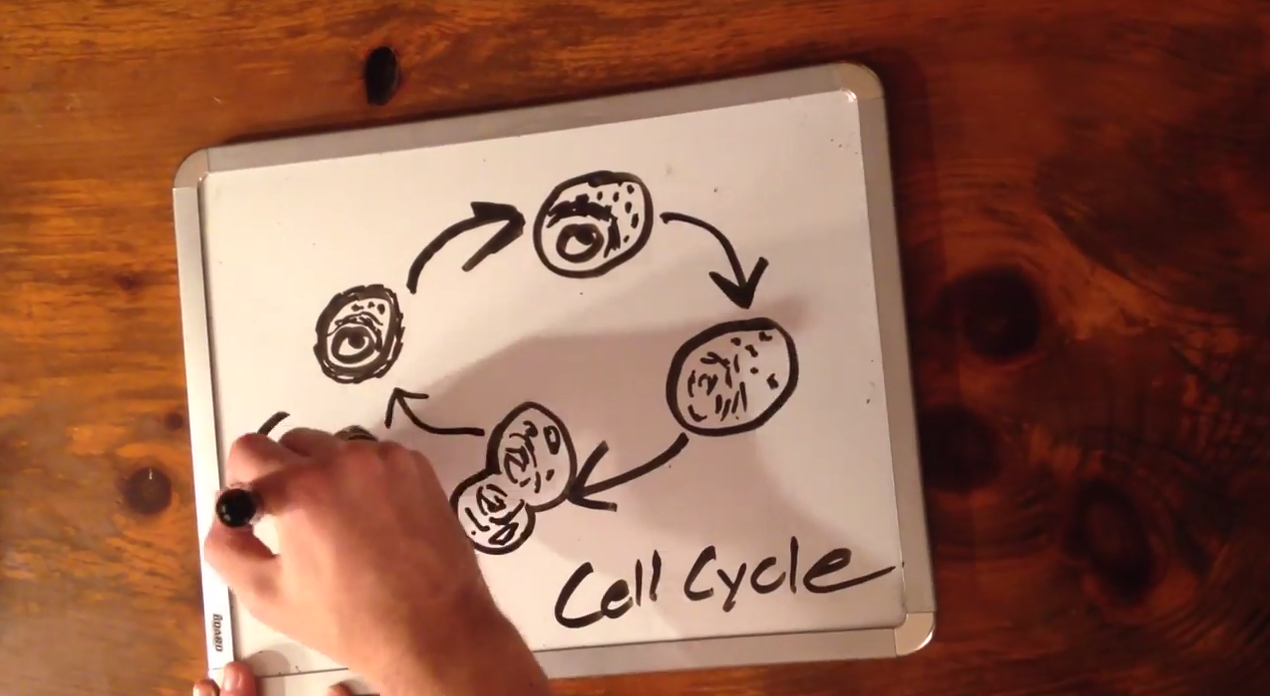 Cell Cycle
BOARD